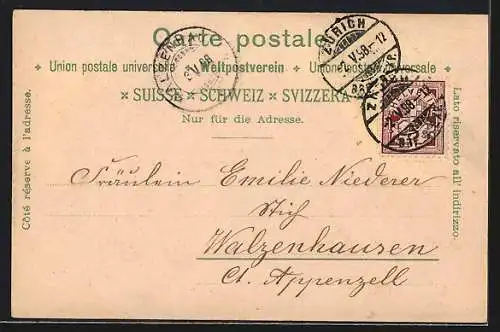 Carte postale.
Union postale universelle Weltpostverein Unione postale universale
SUISSE SCHWEIZ SVIZZERA
Nur für die Adresse.
Côté réservé à l'adresse.
Lato riservato all' indirizzo.
ZÜRICH
Fräulein Emilie Niederer
Stich
Walzenhausen
Ct. Appenzell